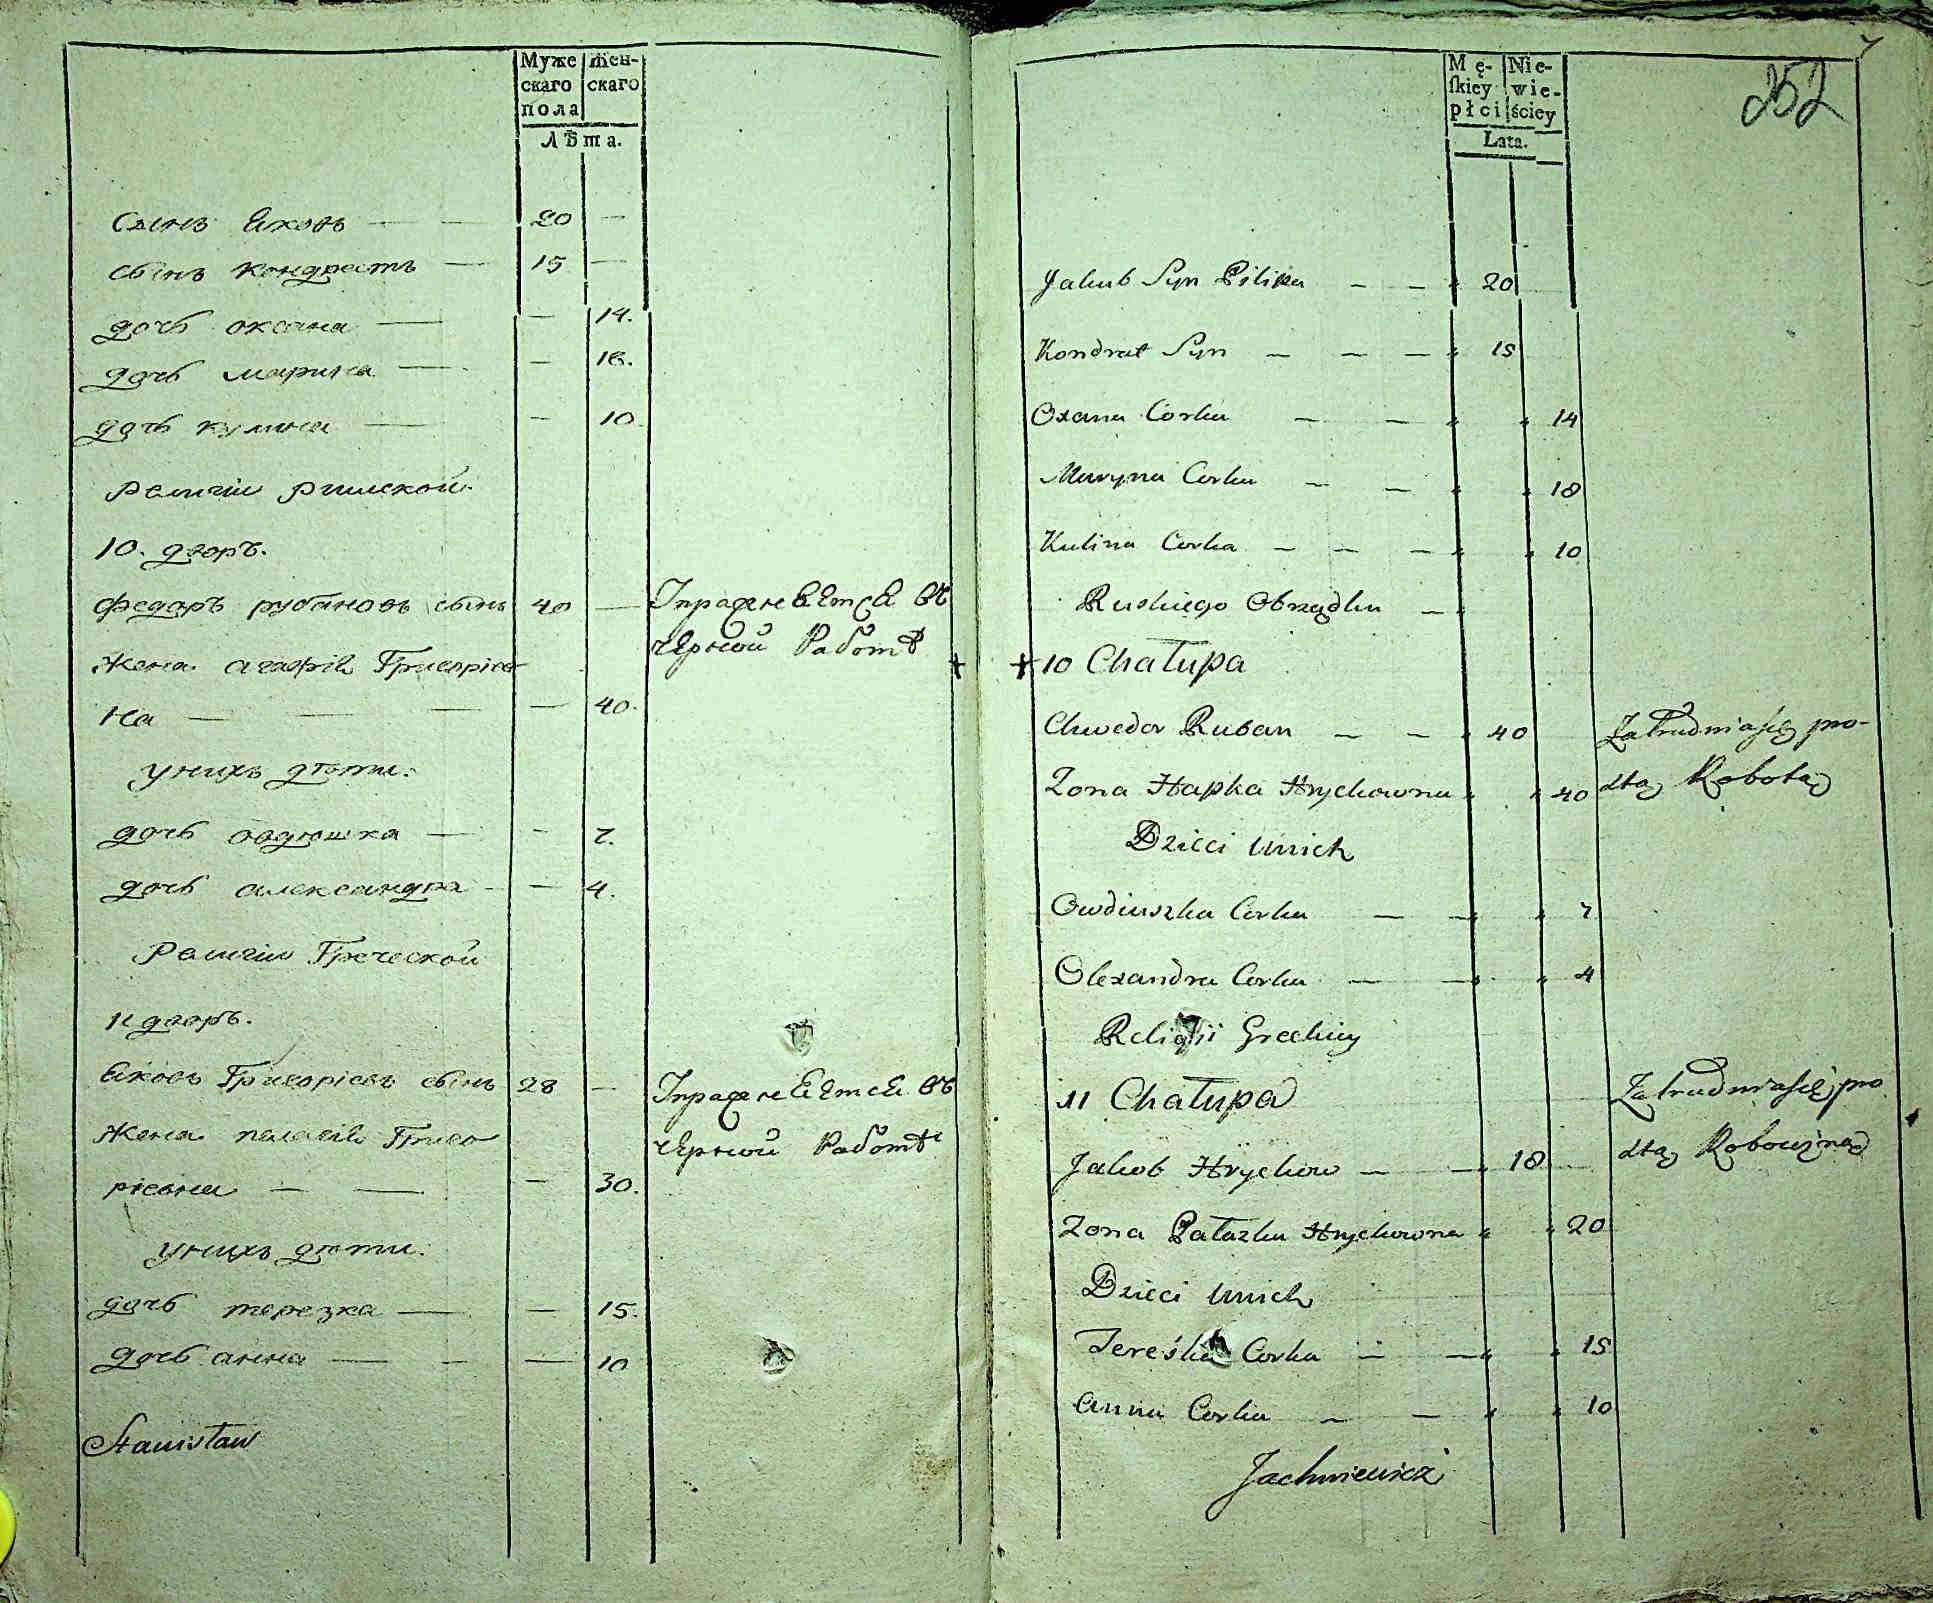 Муже
скаго
пола
Жен-
скаго
Лѣта.
сынъ Яковъ — — 20 —
сынъ Кондратъ — 15 —
дочь оксана — — 14.
дочь марина — — 18.
дочь кулина — — 10
Религiи римской.
10. дворъ.
Федоръ рубановъ сынъ 40 — Упражняется въ
черной Работѣ
Жена агафiя Григорiев
на — — — — 40.
у нихъ дѣти.
дочь овдюшка — — 7.
дочь александра — — 4.
Религiи Греческой
11 дворъ.
Яковъ Григорiевъ сынъ 28 — Упражняется въ
черной Работѣ
Жена пелагiя Григо
рiевна — — — 30.
у нихъ дѣти.
дочь терезка — — 15.
дочь анна — — — 10
Stanisław
Mę-
ſkiey
płci
Nie-
wie-
ściey
Lata.
252
Jakub Syn Pilipa — — " 20
Kondrat Syn — — — " 15
Oxana Corka — — " " 14
Maryna Corka — — " " 18
Kulina Corka — — — " " 10
Ruskiego Obrządku — "
+ + 10 Chałupa
Chwedor Ruban — — " 40 Zatrudnia się pro-
stą Robotą
Zona Hapka Hrychowna " " 40
Dzieci Unich
Owdiuszka Corka — — " " 7
Olexandra Corka — — " " 4
Religii Greckiey
11 Chałupa
Zatrudnia się pro
stą Robocizną
Jakob Hrychow — — " 18 —
Zona Pałazka Hrychowna " " 20
Dzieci Unich
Tereśka Corka — — " " 15
Anna Corka — — " " 10
Jachniewicz